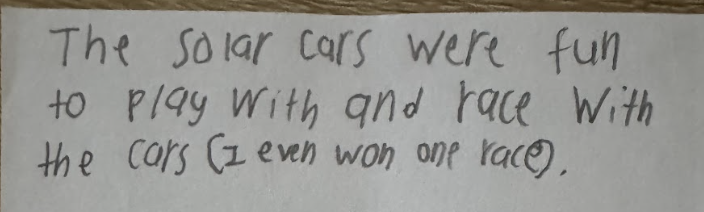 The solar cars were fun
to play with and race with
the cars (I even won one race).